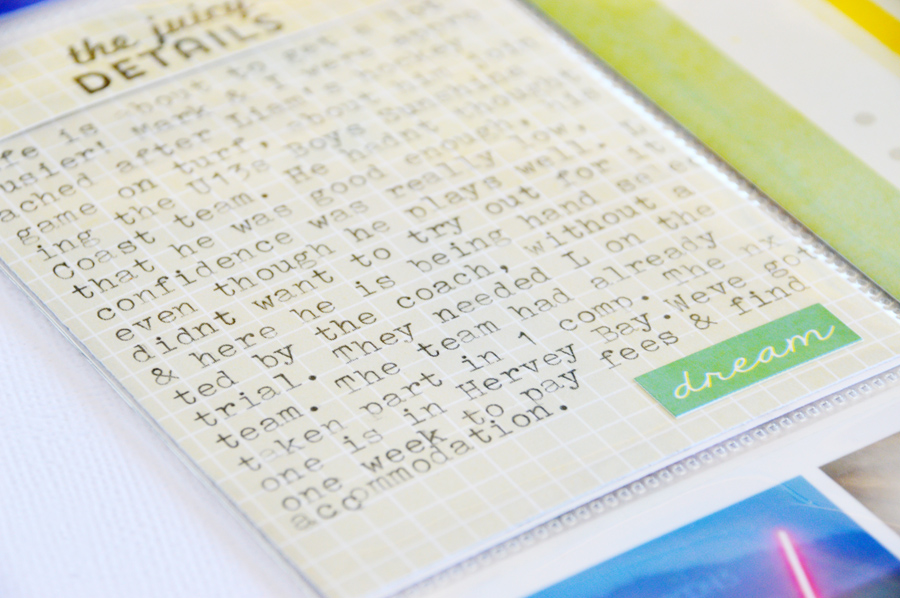 the juicy
DETAILS
fe is about to get a lot
usier! Mark & I were
ached after Liam's hockey
game on turf, about him
ing the U13s Boys Sunshine
Coast team. He hadnt thought
that he was good enough, his
confidence was really low,
even though he plays well. L
didnt want to try out for it
& here he is being hand selec
ted by the coach, without a
trial. They needed L on the
team. The team had already
taken part in 1 comp. The nx
one is in Hervey Bay. Weve got
one week to pay fees & find
accommodation.
dream